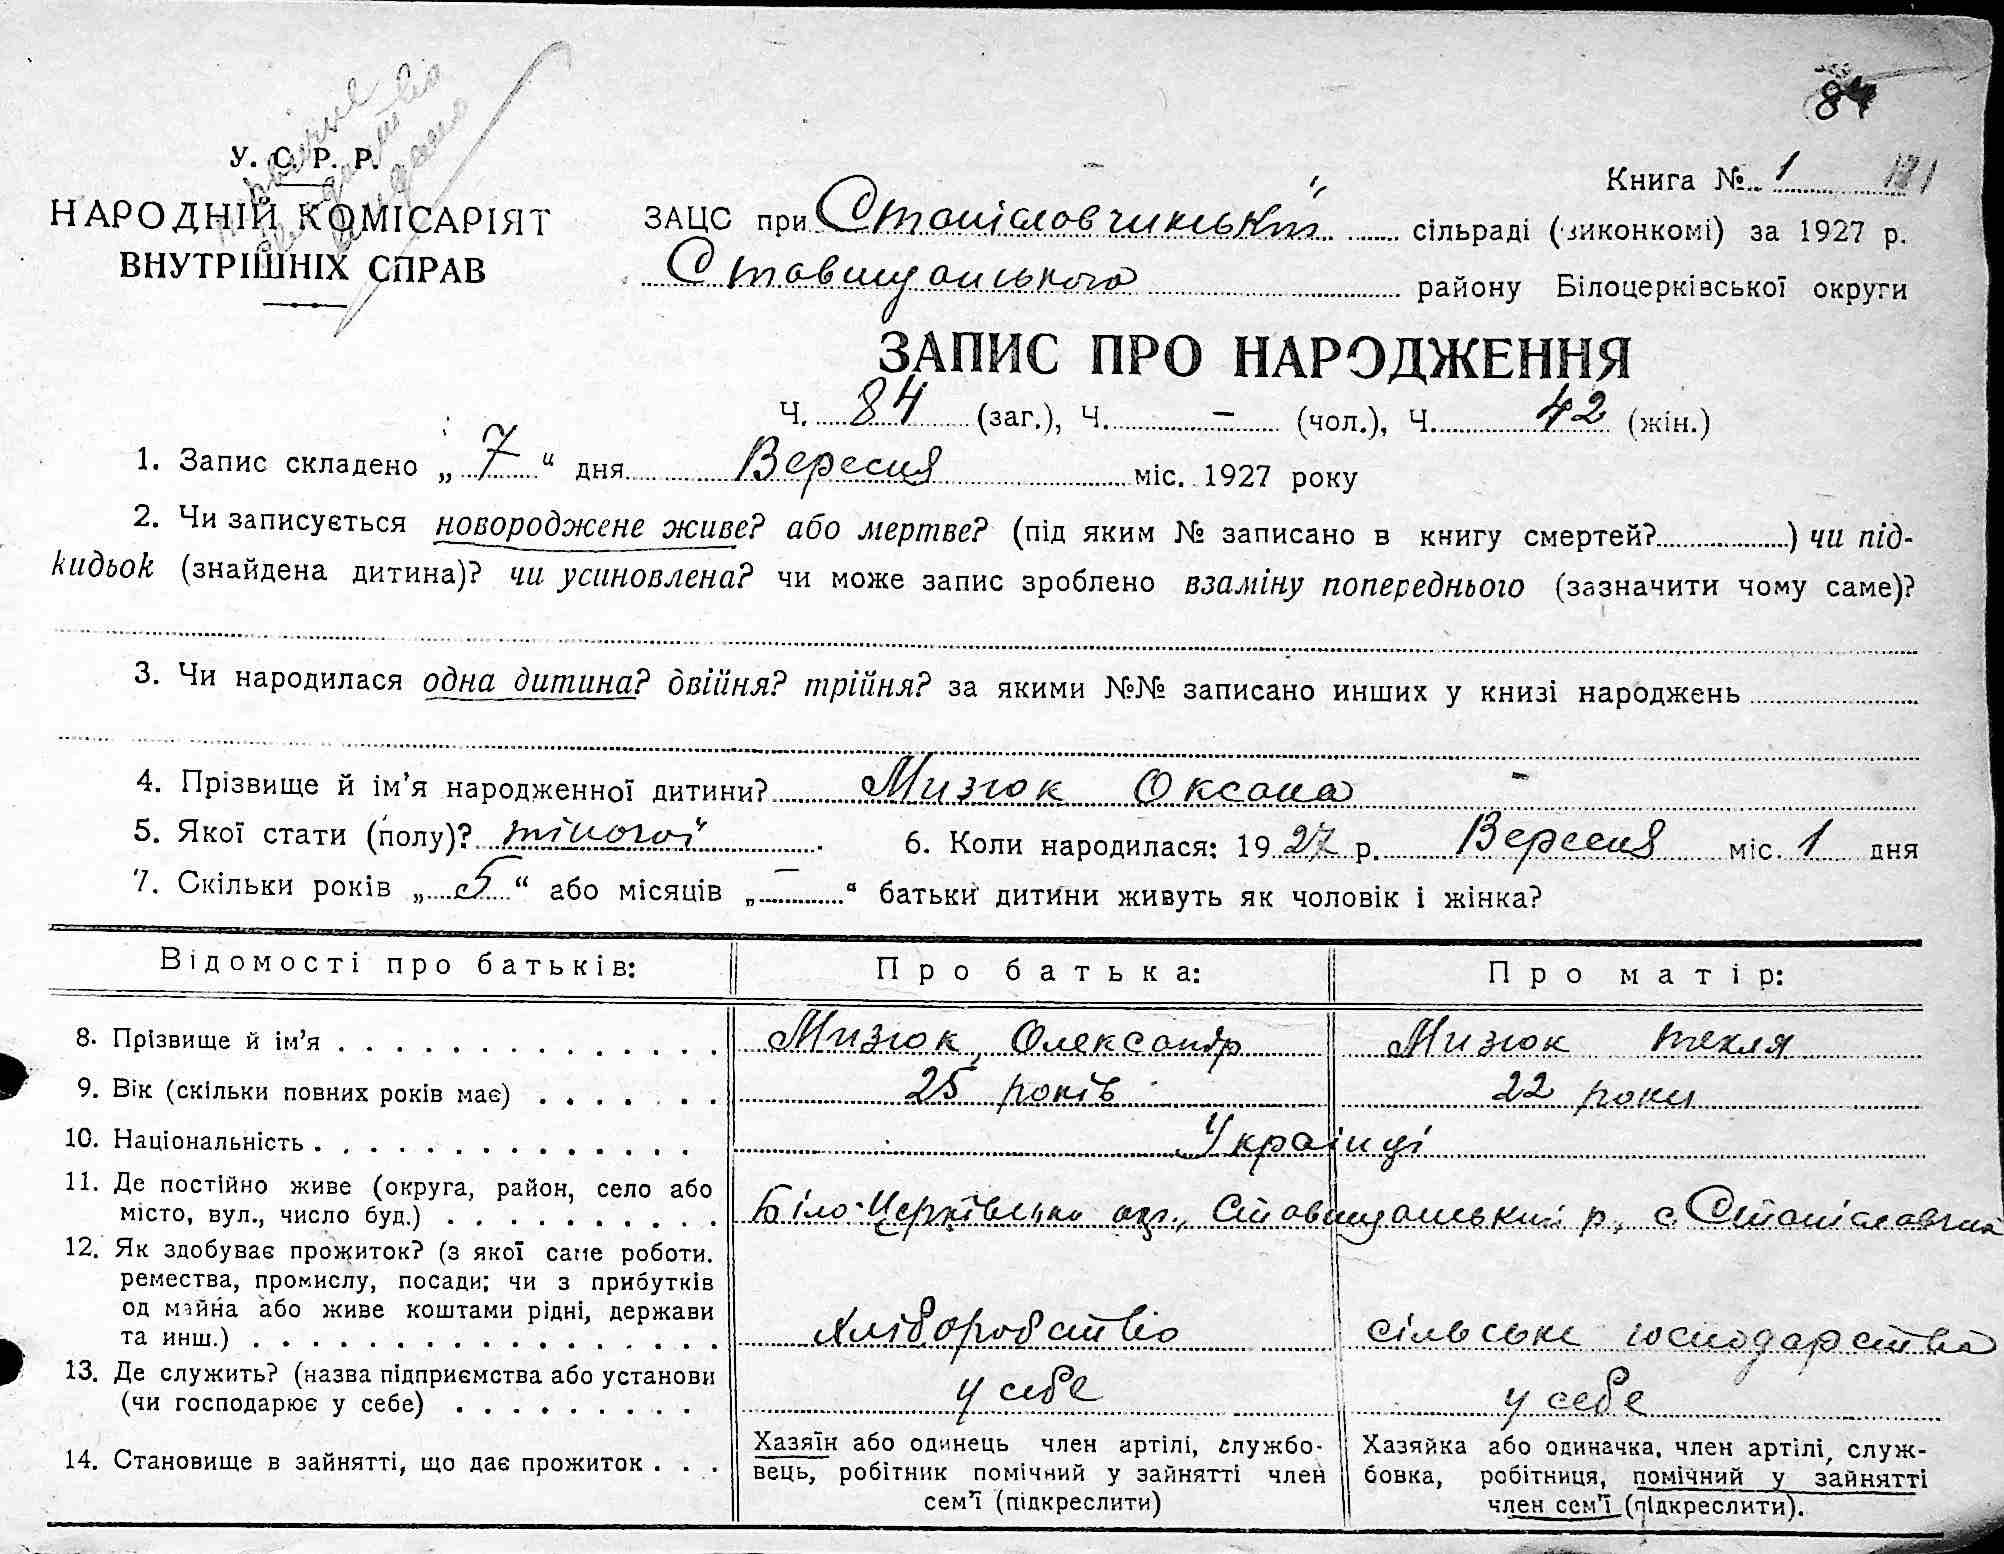 84
У. С. Р. Р.
НАРОДНІЙ КОМІСАРІЯТ
ВНУТРІШНІХ СПРАВ
Книга № 1 181
ЗАЦС при Станіславчинській сільраді (виконкомі) за 1927 р.
Ставищанського району Білоцерківської округи
ЗАПИС ПРО НАРОДЖЕННЯ
Ч. 84 (заг.), Ч. – (чол.), Ч. 42 (жін.)
1. Запис складено „ 7 “ дня Вересня міс. 1927 року
2. Чи записується новороджене живе? або мертве? (під яким № записано в книгу смертей? ) чи під-
кидьок (знайдена дитина)? чи усиновлена? чи може запис зроблено взаміну попереднього (зазначити чому саме)?
3. Чи народилася одна дитина? двійня? трійня? за якими №№ записано инших у книзі народжень
4. Прізвище й ім’я народженної дитини? Мизюк Оксана –
5. Якої стати (полу)? жіночої 6. Коли народилася: 1927 р. Вересня міс. 1 дня
7. Скільки років „ 5 “ або місяців „ – “ батьки дитини живуть як чоловік і жінка?
Відомості про батьків: Про батька: Про матір:
8. Прізвище й ім’я Мизюк, Олександр Мизюк Текля
9. Вік (скільки повних років має) 25 років 22 роки
10. Національність Українці
11. Де постійно живе (округа, район, село або
місто, вул., число буд.) Біло-Церківська окр., Ставищанський р, с Станіславчик
12. Як здобуває прожиток? (з якої саме роботи.
ремества, промислу, посади; чи з прибутків
од майна або живе коштами рідні, держави
та инш.) Хліборобство сільське господарство
13. Де служить? (назва підприємства або установи
(чи господарює у себе) у себе у себе
14. Становище в зайнятті, що дає прожиток
Хазяїн або одинець член артілі, службо-
вець, робітник помічний у зайнятті член
сем’ї (підкреслити)
Хазяйка або одиначка, член артілі, служ-
бовка, робітниця, помічний у зайнятті
член сем’ї (підкреслити).